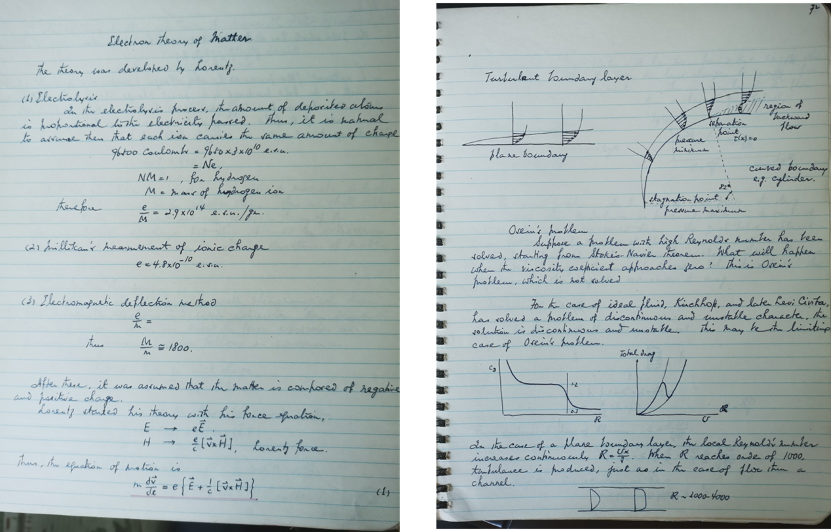 Electron theory of Matter
The theory was developed by Lorentz.
(1) Electrolysis
In the electrolysis process, the amount of deposited atoms
is proportional to the electricity passed. Thus, it is natural
to assume then that each ion carries the same amount of charge
96500 Coulombs = 9650 x 3 x 10^10 e.s.u.
= Ne,
NM = 1, for hydrogen
M = mass of hydrogen ion
therefore e/M = 2.9 x 10^14 e.s.u./gr.
(2) Millikan's measurement of ionic charge
e = 4.8 x 10^-10 e.s.u.
(3) Electromagnetic deflection method
e/m =
thus M/m ≅ 1800.
After these, it was assumed that the matter is composed of negative
and positive charge.
Lorentz started his theory with his force equation,
E → eE⃗.
H → e/c [v⃗xH⃗], Lorentz force.
Thus, the equation of motion is
m dv⃗/dt = e{E⃗ + 1/c [v⃗xH⃗]}
(1)
72
Turbulent boundary layer
plane boundary
separation
point
pressure
minimum
region of
backward
flow
curved boundary
e.g. cylinder.
stagnation point
pressure maximum
Oseen's problem
Suppose a problem with high Reynold's number has been
solved, starting from Stokes Navier theorem. What will happen
when the viscosity coefficient approaches zero? This is Oseen's
problem, which is not solved
For the case of ideal fluid, Kirchhoff, and late Levi Civita,
has solved a problem of discontinuous and unstable character, the
solution is discontinuous and unstable. This may be the limiting
case of Oseen's problem.
Total drag
R
U
In the case of a plane boundary layer, the local Reynold's number
increases continuously R = Ux/ν. When R reaches order of 1000,
turbulence is produced, just as in the case of flow thru a
channel.
R ~ 1000-4000